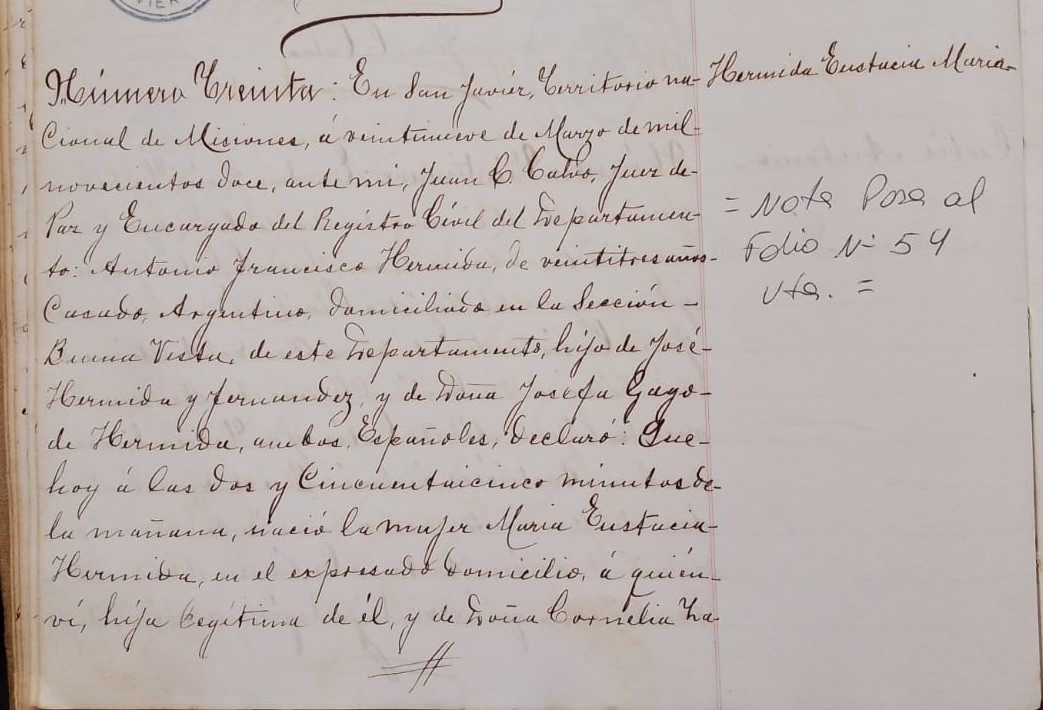 VIER
Número Treinta: En San Javiér, Territorio na-
cional de Misiones, á veintinueve de Marzo de mil-
novecientos doce, ante mi, Juan C. Calvo, Juez de-
Paz y Encargado del Registro Cívil del Departamen-
to: Antonio Francisco Hermida, de veintitres años-
Casado, Argentino, domiciliado en la Sección-
Buena Vista, de este Departamento, hijo de José-
Hermida y Fernandez, y de Doña Josefa Gago-
de Hermida, ambos, Españoles, declaró: Que-
hoy á las dos y Cincuentaicinco minutos de-
la mañana, nació la mujer Maria Eustacia-
Hermida, en el expresado domicilio, á quién-
ví, hija legítima de él, y de Doña Cornelia Za-
Hermida Eustacia Maria-
= Nota Pasa al
Folio Nº 54
vta. =